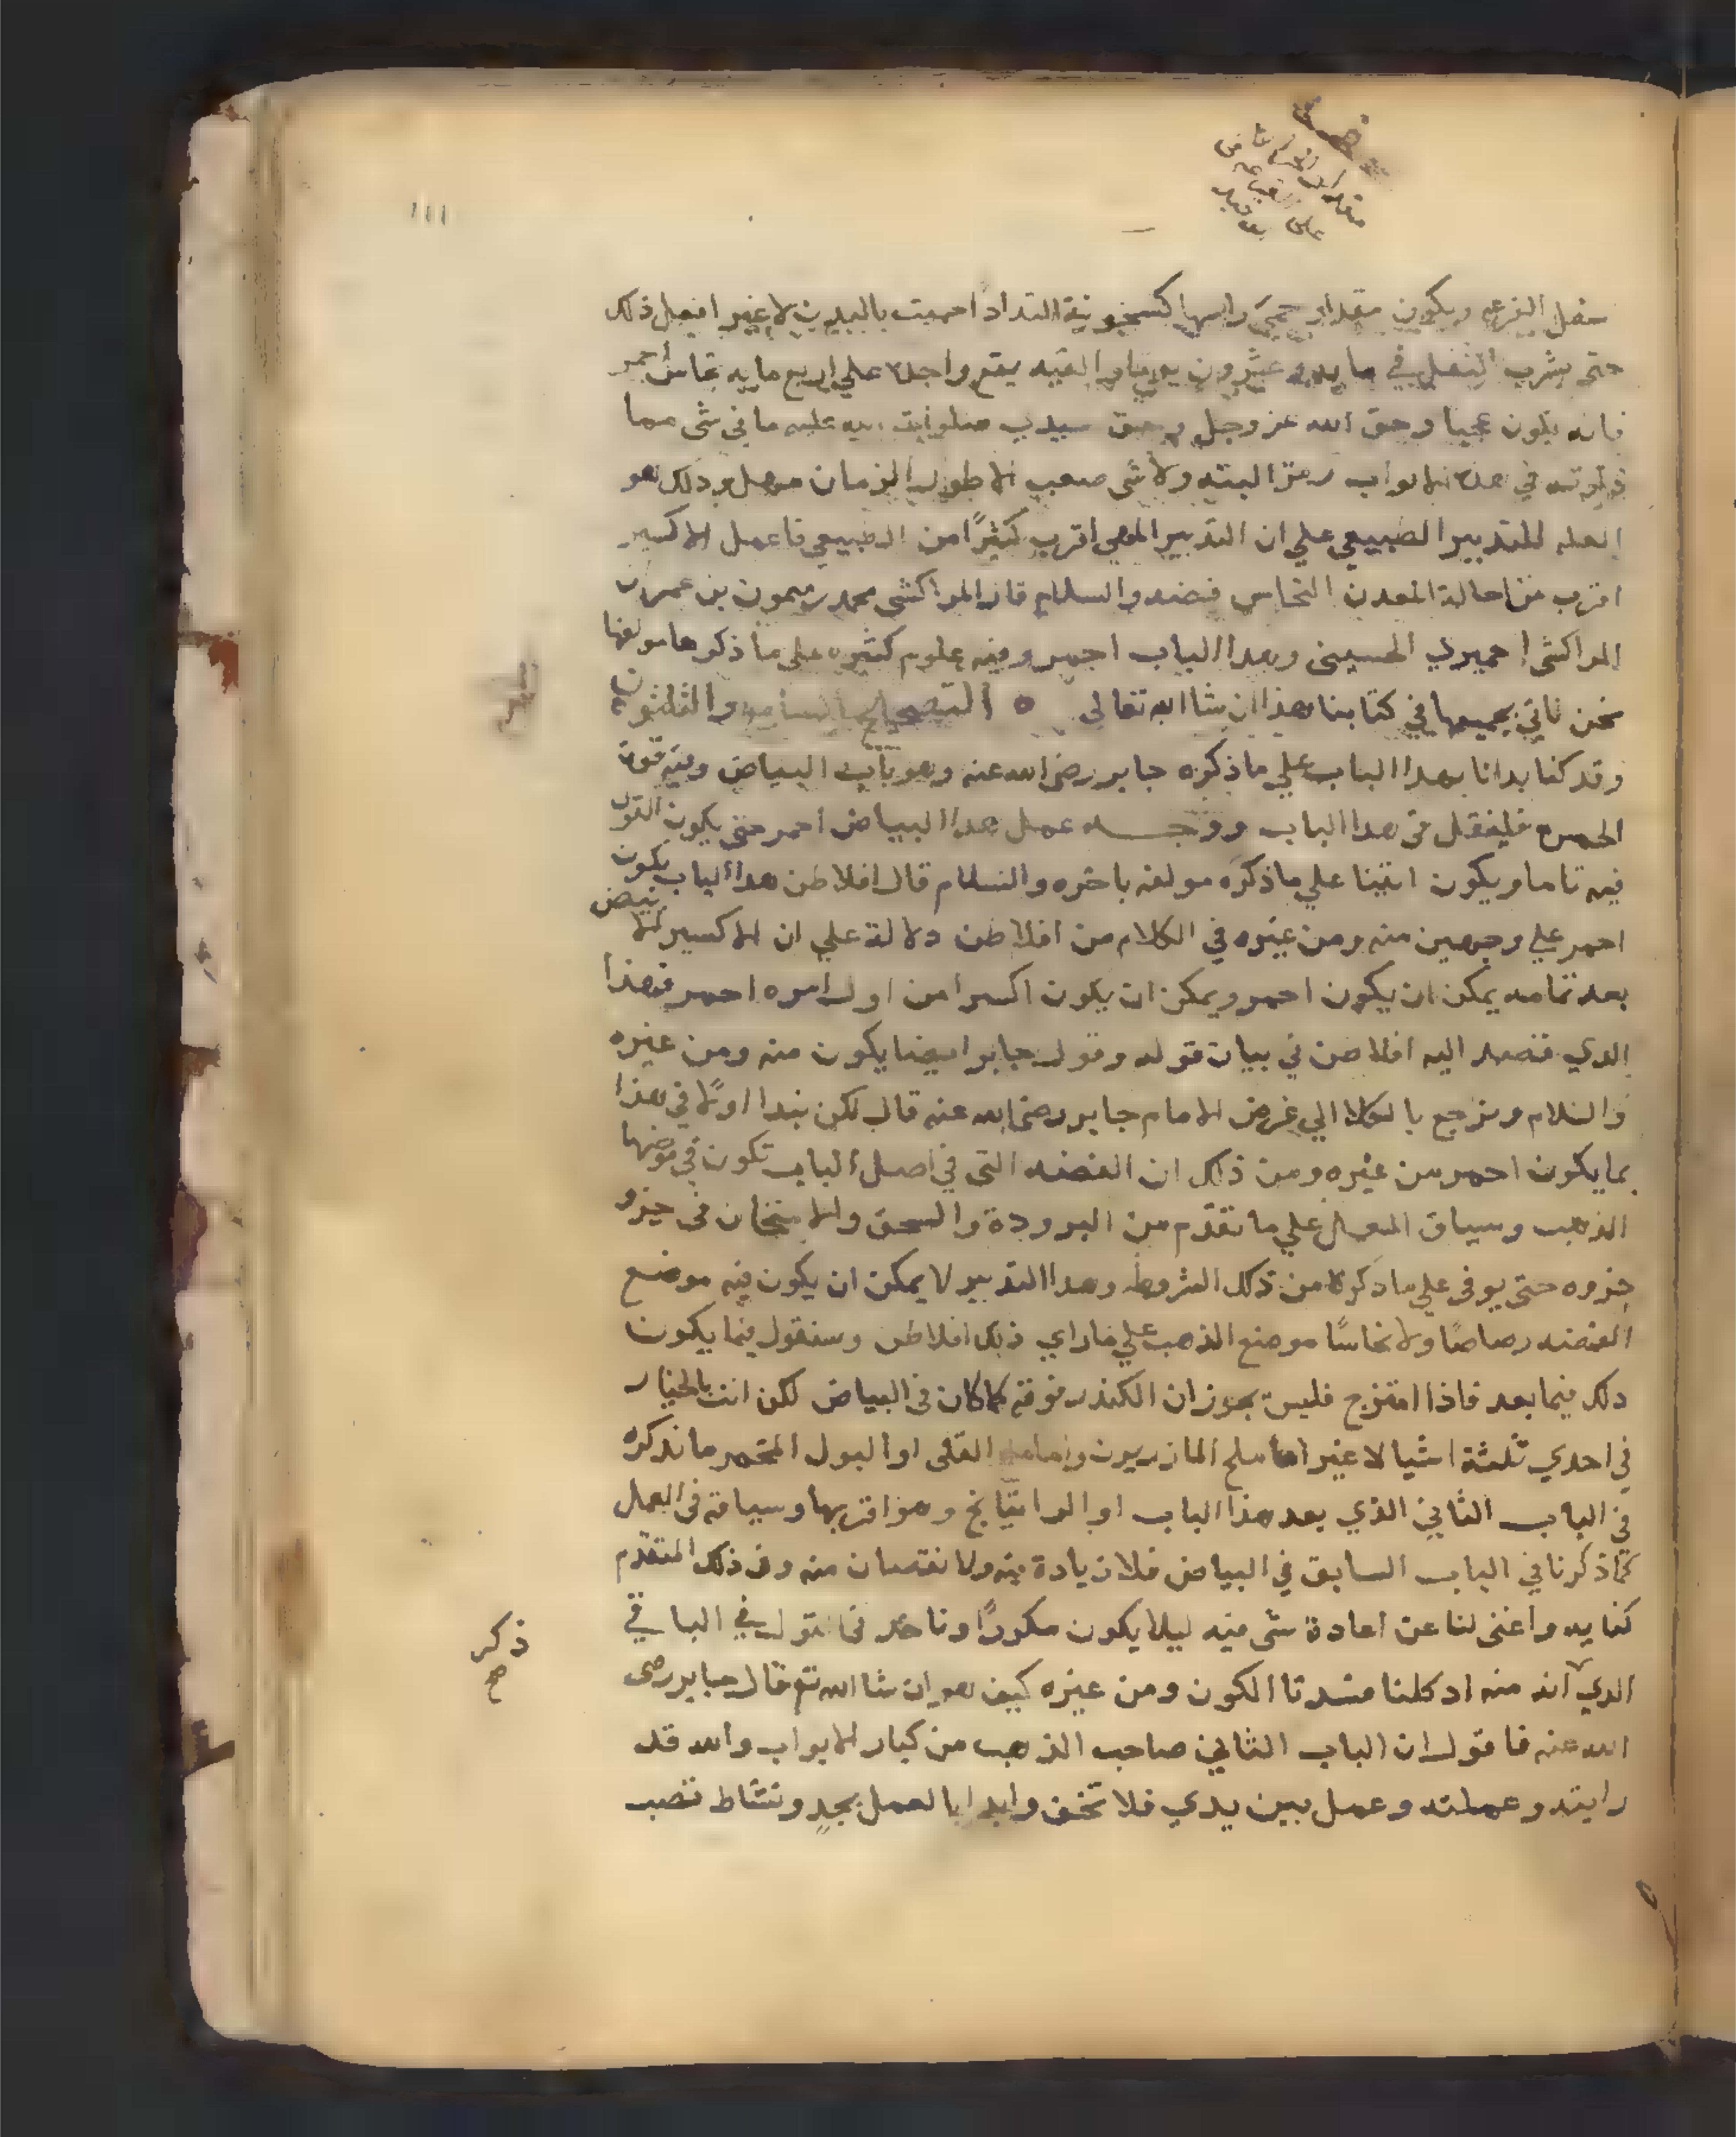 ١١١
سفل القرعه ويكون مقدار حمي راسها كسخونة النداد احميت باليدين لا غير افعل ذلك
حتى يشرب الثفل في ما يه عشرون يوما والقيه يقع واحده علي اربع مايه نحاس احمر
فانه يكون عجبا وحق الله عز وجل وحق سيدي صلوات الله عليه ما في شي مما
ذكرته في هذه الابواب رمز البته ولا شي صعب الا طول الزمان مهل وذلك هو
العله للتدبير الطبيعي علي ان التدبير المهي اقرب كثيرًا من الطبيعي فاعمل الاكسير
اقرب من احالة المعدن النحاس فضه والسلام قال المراكشي محمد بن ميمون بن عمران
المراكشي الحميري الحسيني وهذا الباب احمر وفيه علوم كثيره علي ما ذكرها مولفها
نحن ناتي بجميعها في كتابنا هذا ان شا الله تعالى ٥ التصحيح السادس والثلثون
وقد كنا بدانا بهذا الباب علي ما ذكره جابر رضى الله عنه وهو باب البياض وفيه قوة
الحمره فليفقل في هذا الباب ووجه عمل هذا البياض احمر حتى يكون القول
فيه تاما ويكون اتينا علي ما ذكره مولفه باخره والسلام قال افلاطن هذا الباب يكون
احمر علي وجهين منه ومن غيره في الكلام من افلاطن دلالة علي ان الاكسير الابيض
بعد تمامه يمكن ان يكون احمر ويمكن ان يكون اكسيرا من اول امره احمر فهذا
الدي قصد اليه افلاطن في بيان قوله وقول جابر ايضا يكون منه ومن غيره
والسلام ونرجع بالكلام الي غرض الامام جابر رضى الله عنه قال لكن نبدا اولًا في هذا
بما يكون احمر من غيره ومن ذلك ان الفضه التى في اصل الباب تكون في موضعها
الذهب وسياق العمل علي ما تقدم من البرودة والسحق والامتحان فى جزو
جزوه حتى يوفى علي ما ذكرنا من تلك الشروط وهذا التدبير لا يمكن ان يكون فيه موضع
الفضه رصاصًا ولا نحاسًا موضع الذهب علي ما راي ذلك افلاطن وسنقول فيما يكون
دلك فيما بعد فاذا امتزج فليس يجوز ان الكندر فوقه كما كان فى البياض لكن انت بالخيار
في احدي ثلثة اشيا لا غير اما ملح المازريون واما ملح القلى او البول المخمر ما نذكره
في الباب الثاني الذي بعد هذا الباب او الراتيانج وهو اقربها وسياقه فى العمل
كما ذكرنا في الباب السابق في البياض فلا زيادة فيه ولا نقصان منه وفى ذلك المتقدم
كفايه واغنى لنا عن اعادة شى فيه ليلا يكون مكررًا وناخذ فى القول في الباقي
الدي انه منه اد كلنا مسدتا الكون ومن غيره كيف هو ان شا الله تع قال جابر رضى
الله عنه فاقول ان الباب الثاني صاحب الذهب من كبار الابواب والله قد
رايته وعملته وعمل بين يدي فلا تخف وابدا بالعمل بجد ونشاط تصب
ذكر
صح